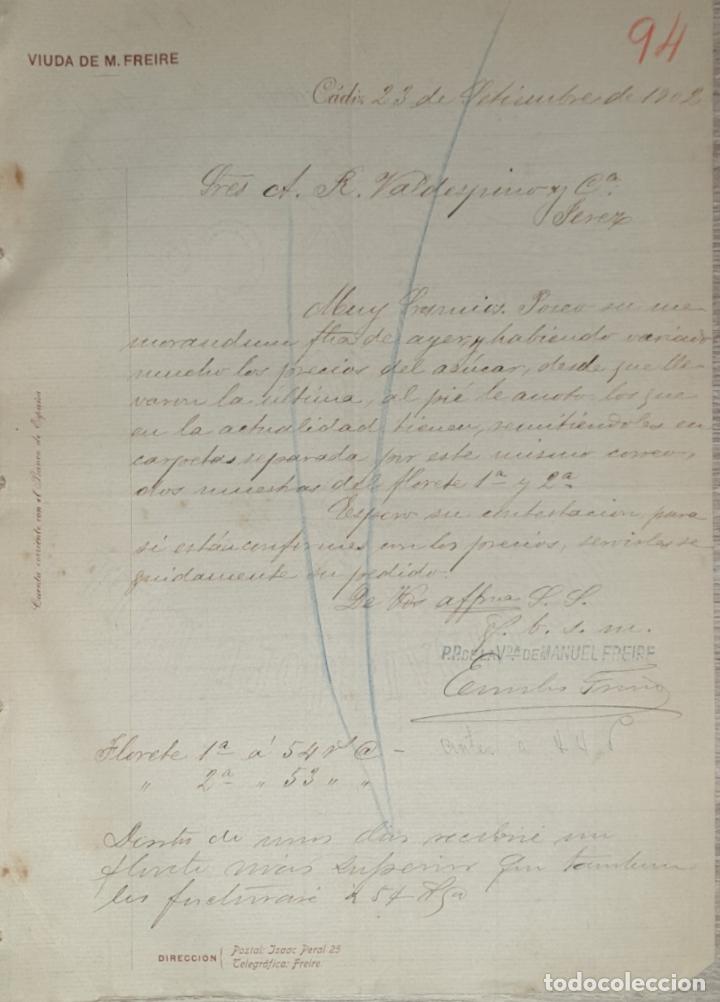 94
VIUDA DE M. FREIRE
Cádiz 23 de Setiembre de 1902
Sres A. R. Valdespino y Cª
Jerez
Muy Sres mios. Poseo su me
morandum fha de ayer, y habiendo variado
mucho los precios del azúcar, desde que lle
varon la última, al pié le anoto los que
en la actualidad tienen, remitiéndoles en
carpetas separada por este mismo correo,
dos muestras de florete 1ª y 2ª
Espero su contestacion para
si están conformes con los precios, servirles se
guidamente su pedido.
De Vds affma S. S.
q. b. s. m.
P.P. DE LA VDA DE MANUEL FREIRE
Freire
Florete 1ª á 54 rs @ -
antes a 44
" 2ª " 53 " "
Dentro de unos dias recibiré un
florete mas superior que tambien
les facturaré a 54
Cuenta corriente con el Banco de España
DIRECCION Postal: Isaac Peral 25
Telegráfica: Freire
todocoleccion.net